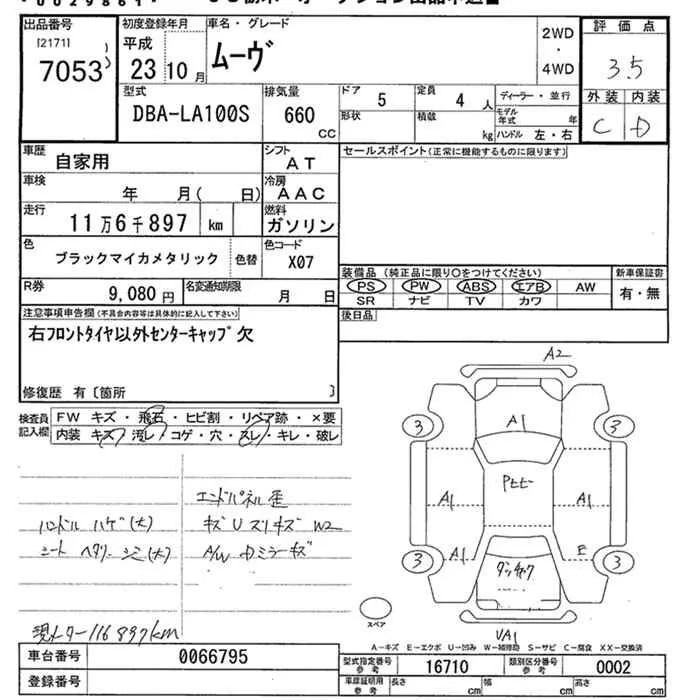 出品番号
[2171]
7053
初度登録年月
平成
23 10 月
車名・グレード
ムーヴ
2WD
・
4WD
評価点
3.5
外装 内装
C D
型式
DBA-LA100S
排気量
660
CC
ドア
5
定員
4 人
ディーラー・並行
形状
積載
kg
モデル年式 年
ハンドル 左・右
車歴
自家用
シフト
AT
車検
年 月( 日)
冷房
AAC
走行
11万6千897 km
燃料
ガソリン
色
ブラックマイカメタリック
色替
色コード
X07
R券
9,080 円
名変通知期限
月 日
セールスポイント(正常に機能するものに限ります)
装備品(純正品に限り○をつけてください)
新車保証書
PS PW ABS エアB AW
有・無
SR ナビ TV カワ
後日品
注意事項申告欄(不具合内容等は具体的に記入して下さい)
右フロントタイヤ以外センターキャップ欠
修復歴 有〔箇所 〕
検査員
記入欄
FW キズ・飛石・ヒビ割・リペア跡・×要
内装 キズ・汚レ・コゲ・穴・スレ・キレ・破レ
エンドパネル歪
ハンドル ハゲ(大)
キズU スリキズ W2
シート ヘタリ シミ(大)
A/W ミラーキズ
現メター116897km
A2
3
A1
3
A1
Pセヒー
A1
3
A1
E
3
ダッシャク
VA1
スペア
A-キズ E-エクボ U-凹み W-補修跡 S-サビ C-腐食 XX-交換済
車台番号
0066795
型式指定番号
参考
16710
類別区分番号
参考
0002
登録番号
車庫証明用
参考
長さ cm
幅 cm
高さ cm